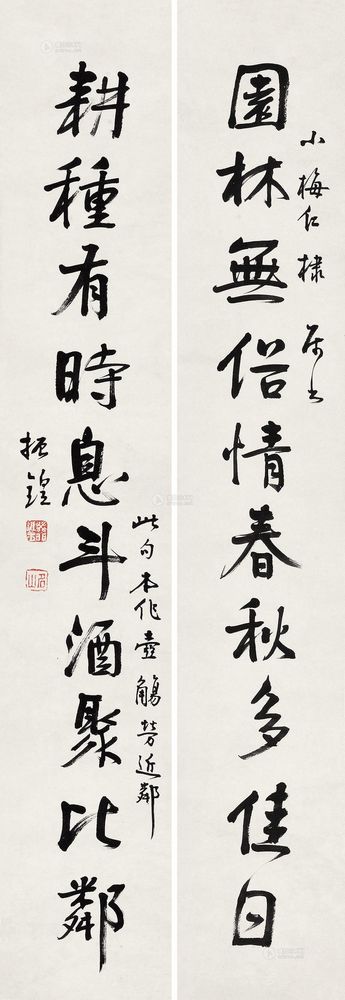 小梅仁棣 属书
園林無俗情春秋多佳日
此句本作壺觴勞近鄰
耕種有時息斗酒聚比鄰
振鍠
名山